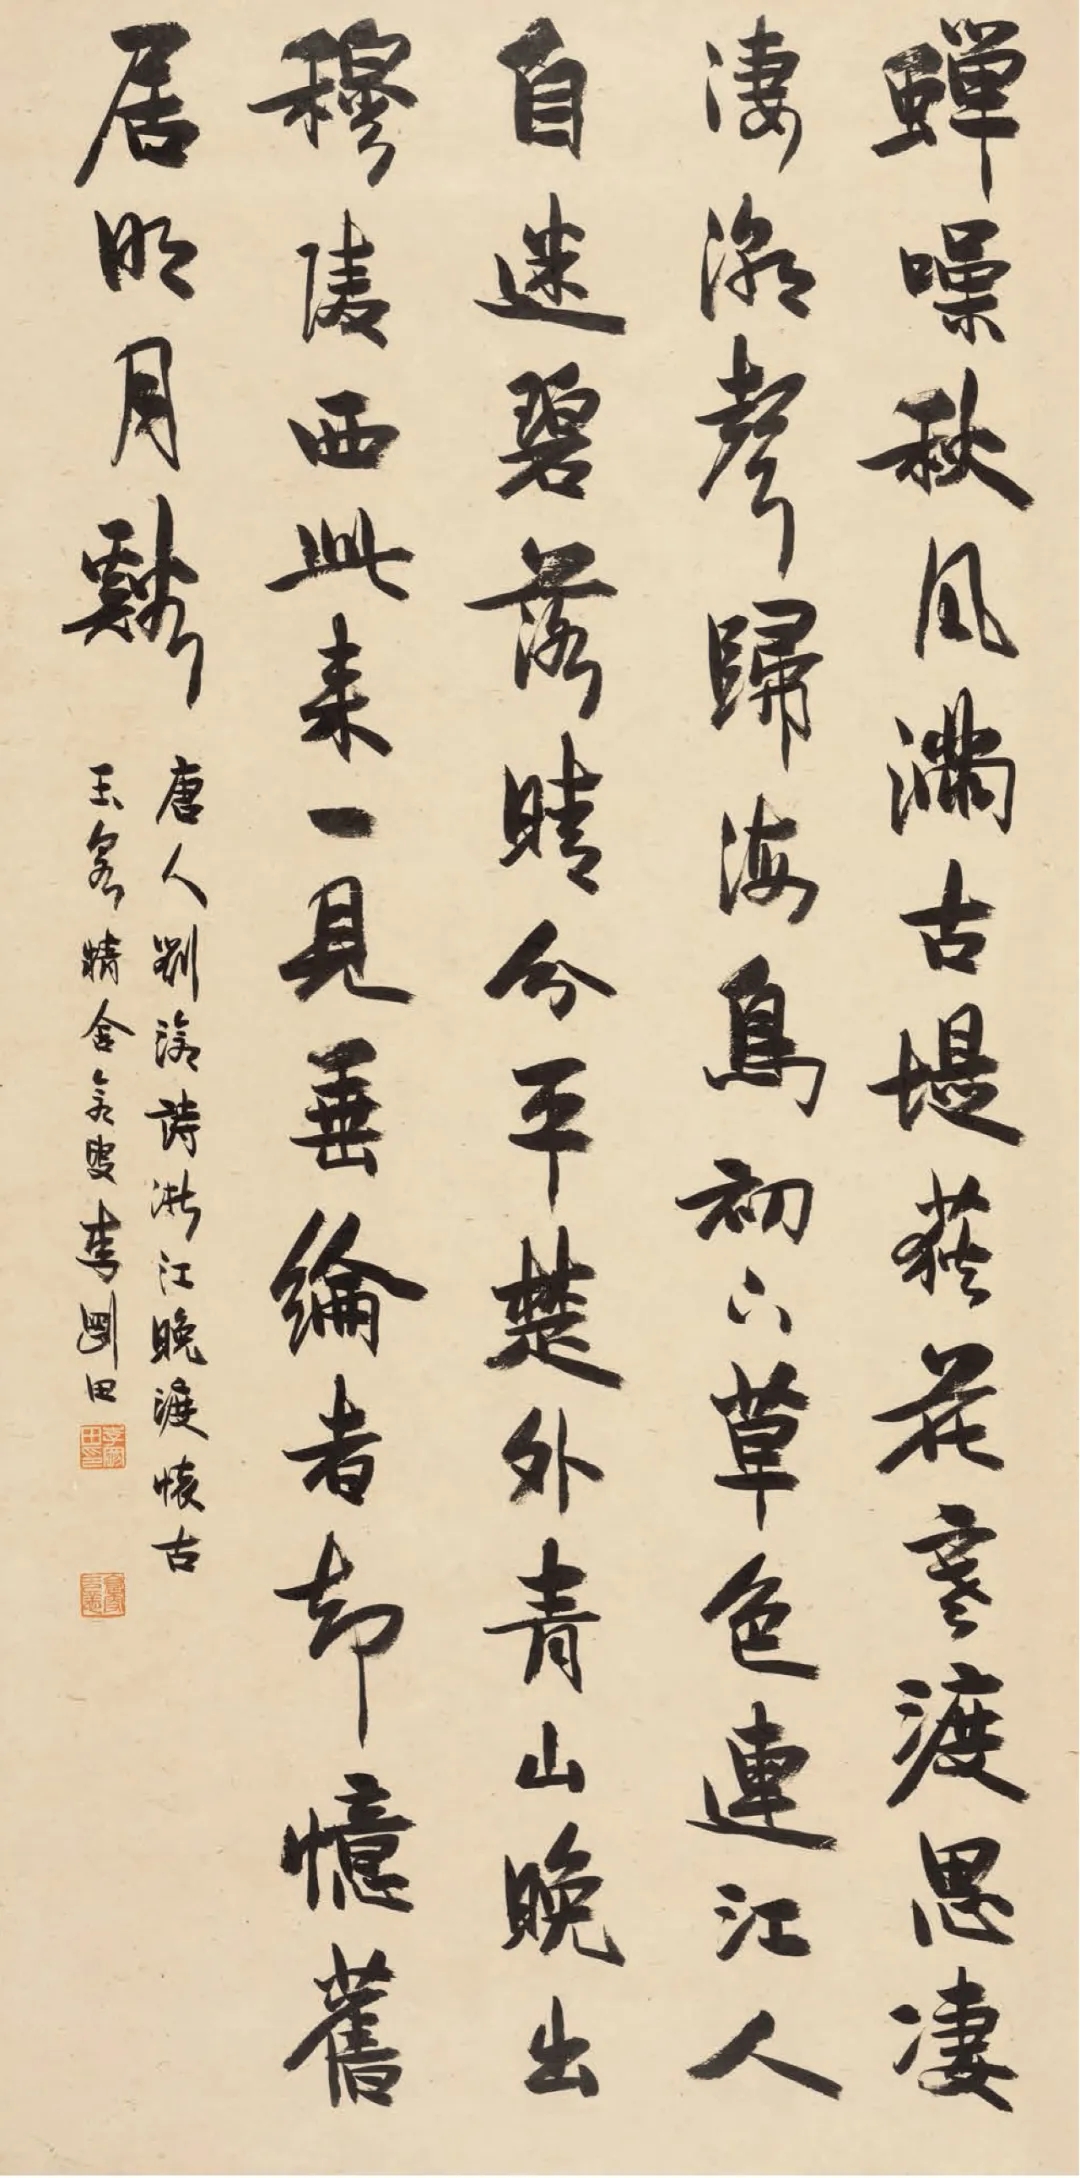 蟬噪秋風滿古堤荻花寒渡思淒
淒潮聲歸海鳥初下草色連江人
自迷碧落晴分平楚外青山晚出
穆陵西此來一見垂綸者却憶舊
居明月谿
唐人劉滄詩浙江晚渡懷古
玉泉精舍剑叟李剛田